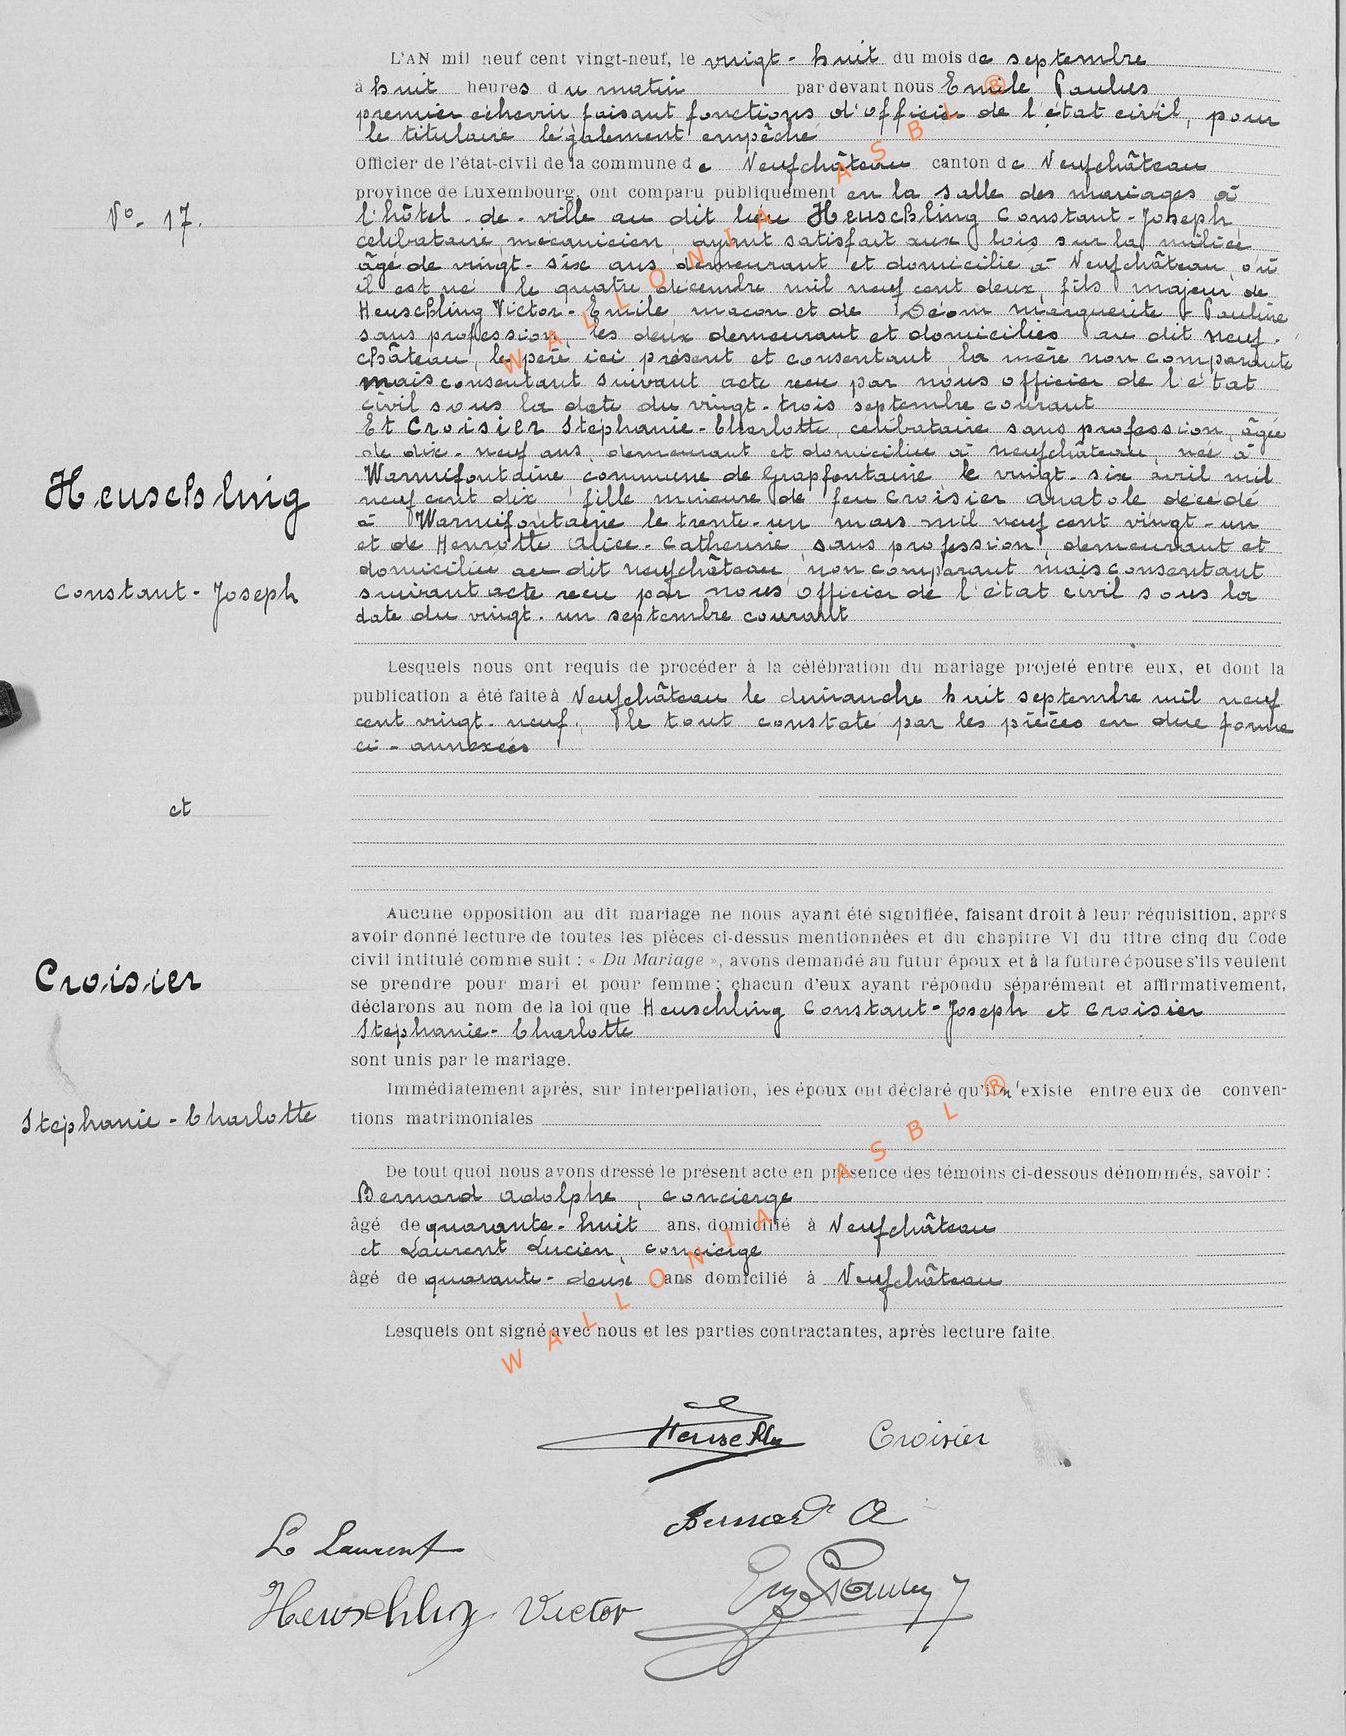 L'AN mil neuf cent vingt-neuf, le vingt-huit du mois de septembre
à huit heures du matin par devant nous Emile Paulus
premier échevin faisant fonctions d'officier de l'état civil, pour
le titulaire légalement empêché
Officier de l'état-civil de la commune de Neufchâteau canton de Neufchâteau
province de Luxembourg, ont comparu publiquement en la salle des mariages à
N° 17.
l'hôtel-de-ville au dit lieu Heuschling Constant-Joseph
célibataire, mécanicien, ayant satisfait aux lois sur la milice
âgé de vingt-six ans demeurant et domicilié à Neufchâteau où
il est né le quatre décembre mil neuf cent deux, fils majeur de
Heuschling Victor-Emile maçon et de Déom Marguerite Pauline
sans profession, les deux demeurant et domiciliés au dit Neuf-
château, le père ici présent et consentant, la mère non comparante
mais consentant suivant acte reçu par nous officier de l'état
civil sous la date du vingt-trois septembre courant
Et Croisier Stéphanie-Charlotte, célibataire sans profession, âgée
de dix-neuf ans, demeurant et domiciliée à Neufchâteau, née à
Warmifontaine, commune de Grapfontaine le vingt-six avril mil
Heuschling
neuf cent dix, fille mineure de feu Croisier Anatole décédé
à Warmifontaine le trente-un mars mil neuf cent vingt-un
et de Henrotte Alice-Catherine, sans profession, demeurant et
domiciliée au dit Neufchâteau, non comparant mais consentant
Constant-Joseph
suivant acte reçu par nous officier de l'état civil sous la
date du vingt-un septembre courant
Lesquels nous ont requis de procéder à la célébration du mariage projeté entre eux, et dont la
publication a été faite à Neufchâteau le dimanche huit septembre mil neuf
cent vingt-neuf. Le tout constaté par les pièces en due forme
ci-annexées
et
Aucune opposition au dit mariage ne nous ayant été signifiée, faisant droit à leur réquisition, après
avoir donné lecture de toutes les pièces ci-dessus mentionnées et du chapitre VI du titre cinq du Code
civil intitulé comme suit : « Du Mariage », avons demandé au futur époux et à la future épouse s'ils veulent
Croisier
se prendre pour mari et pour femme ; chacun d'eux ayant répondu séparément et affirmativement,
déclarons au nom de la loi que Heuschling Constant-Joseph et Croisier
Stéphanie-Charlotte
sont unis par le mariage.
Immédiatement après, sur interpellation, les époux ont déclaré qu'il n'existe entre eux de conven-
Stéphanie-Charlotte
tions matrimoniales
De tout quoi nous avons dressé le présent acte en présence des témoins ci-dessous dénommés, savoir :
Bernard Adolphe, concierge
âgé de quarante-huit ans, domicilié à Neufchâteau
et Laurent Lucien, concierge
âgé de quarante-deux ans domicilié à Neufchâteau
Lesquels ont signé avec nous et les parties contractantes, après lecture faite.
Croisier
Bernard A
L Laurent
Heuschling Victor
WALLONIA ASBL ®
WALLONIA ASBL ®